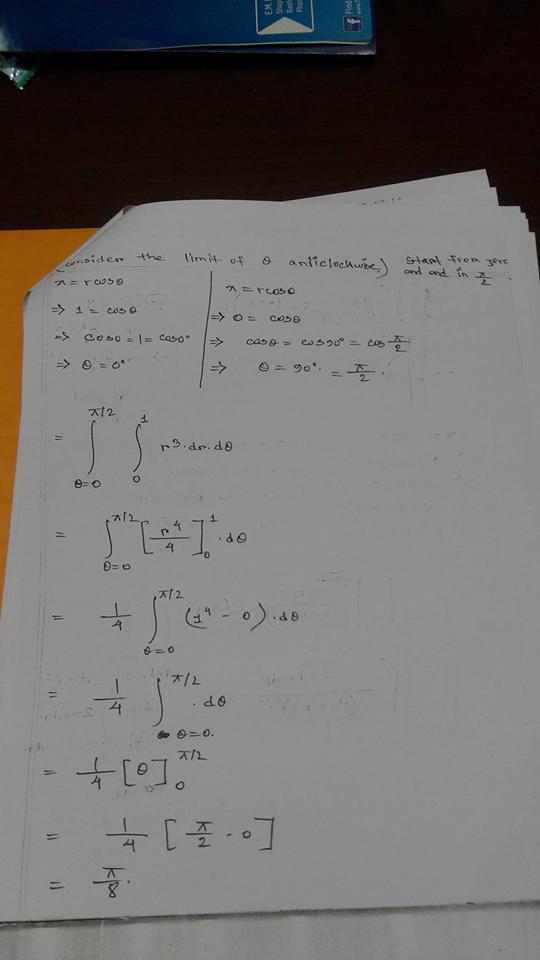 E.M.
Find
(consider the limit of θ anticlockwise) start from zero
and end in π/2.
x = rcosθ
x = rcosθ
⇒ 1 = cosθ
⇒ 0 = cosθ
⇒ cosθ = 1 = cos0°
⇒ cosθ = cos90° = cos π/2
⇒ θ = 0°
⇒ θ = 90° = π/2.
= ∫_{θ=0}^{π/2} ∫_0^1 r³·dr·dθ
= ∫_{θ=0}^{π/2} [r⁴/4]_0^1 · dθ
= 1/4 ∫_{θ=0}^{π/2} (1⁴ - 0)·dθ
= 1/4 ∫_{θ=0.}^{π/2} · dθ
= 1/4 [θ]_0^{π/2}
= 1/4 [π/2 - 0]
= π/8.